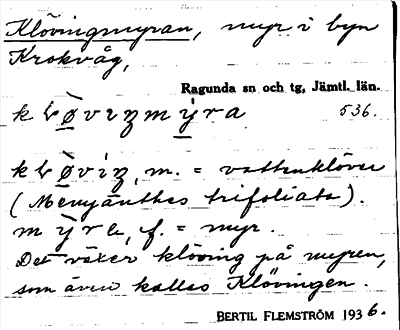 Klövingmyran, myr i byn
Krokvåg,
Ragunda sn och tg, Jämtl. län.
536.
m. = vattenklöver
(Menyanthes trifoliata).
f. = myr.
Det växer klöving på myren,
som även kallas Klövingen.
BERTIL FLEMSTRÖM 1936.